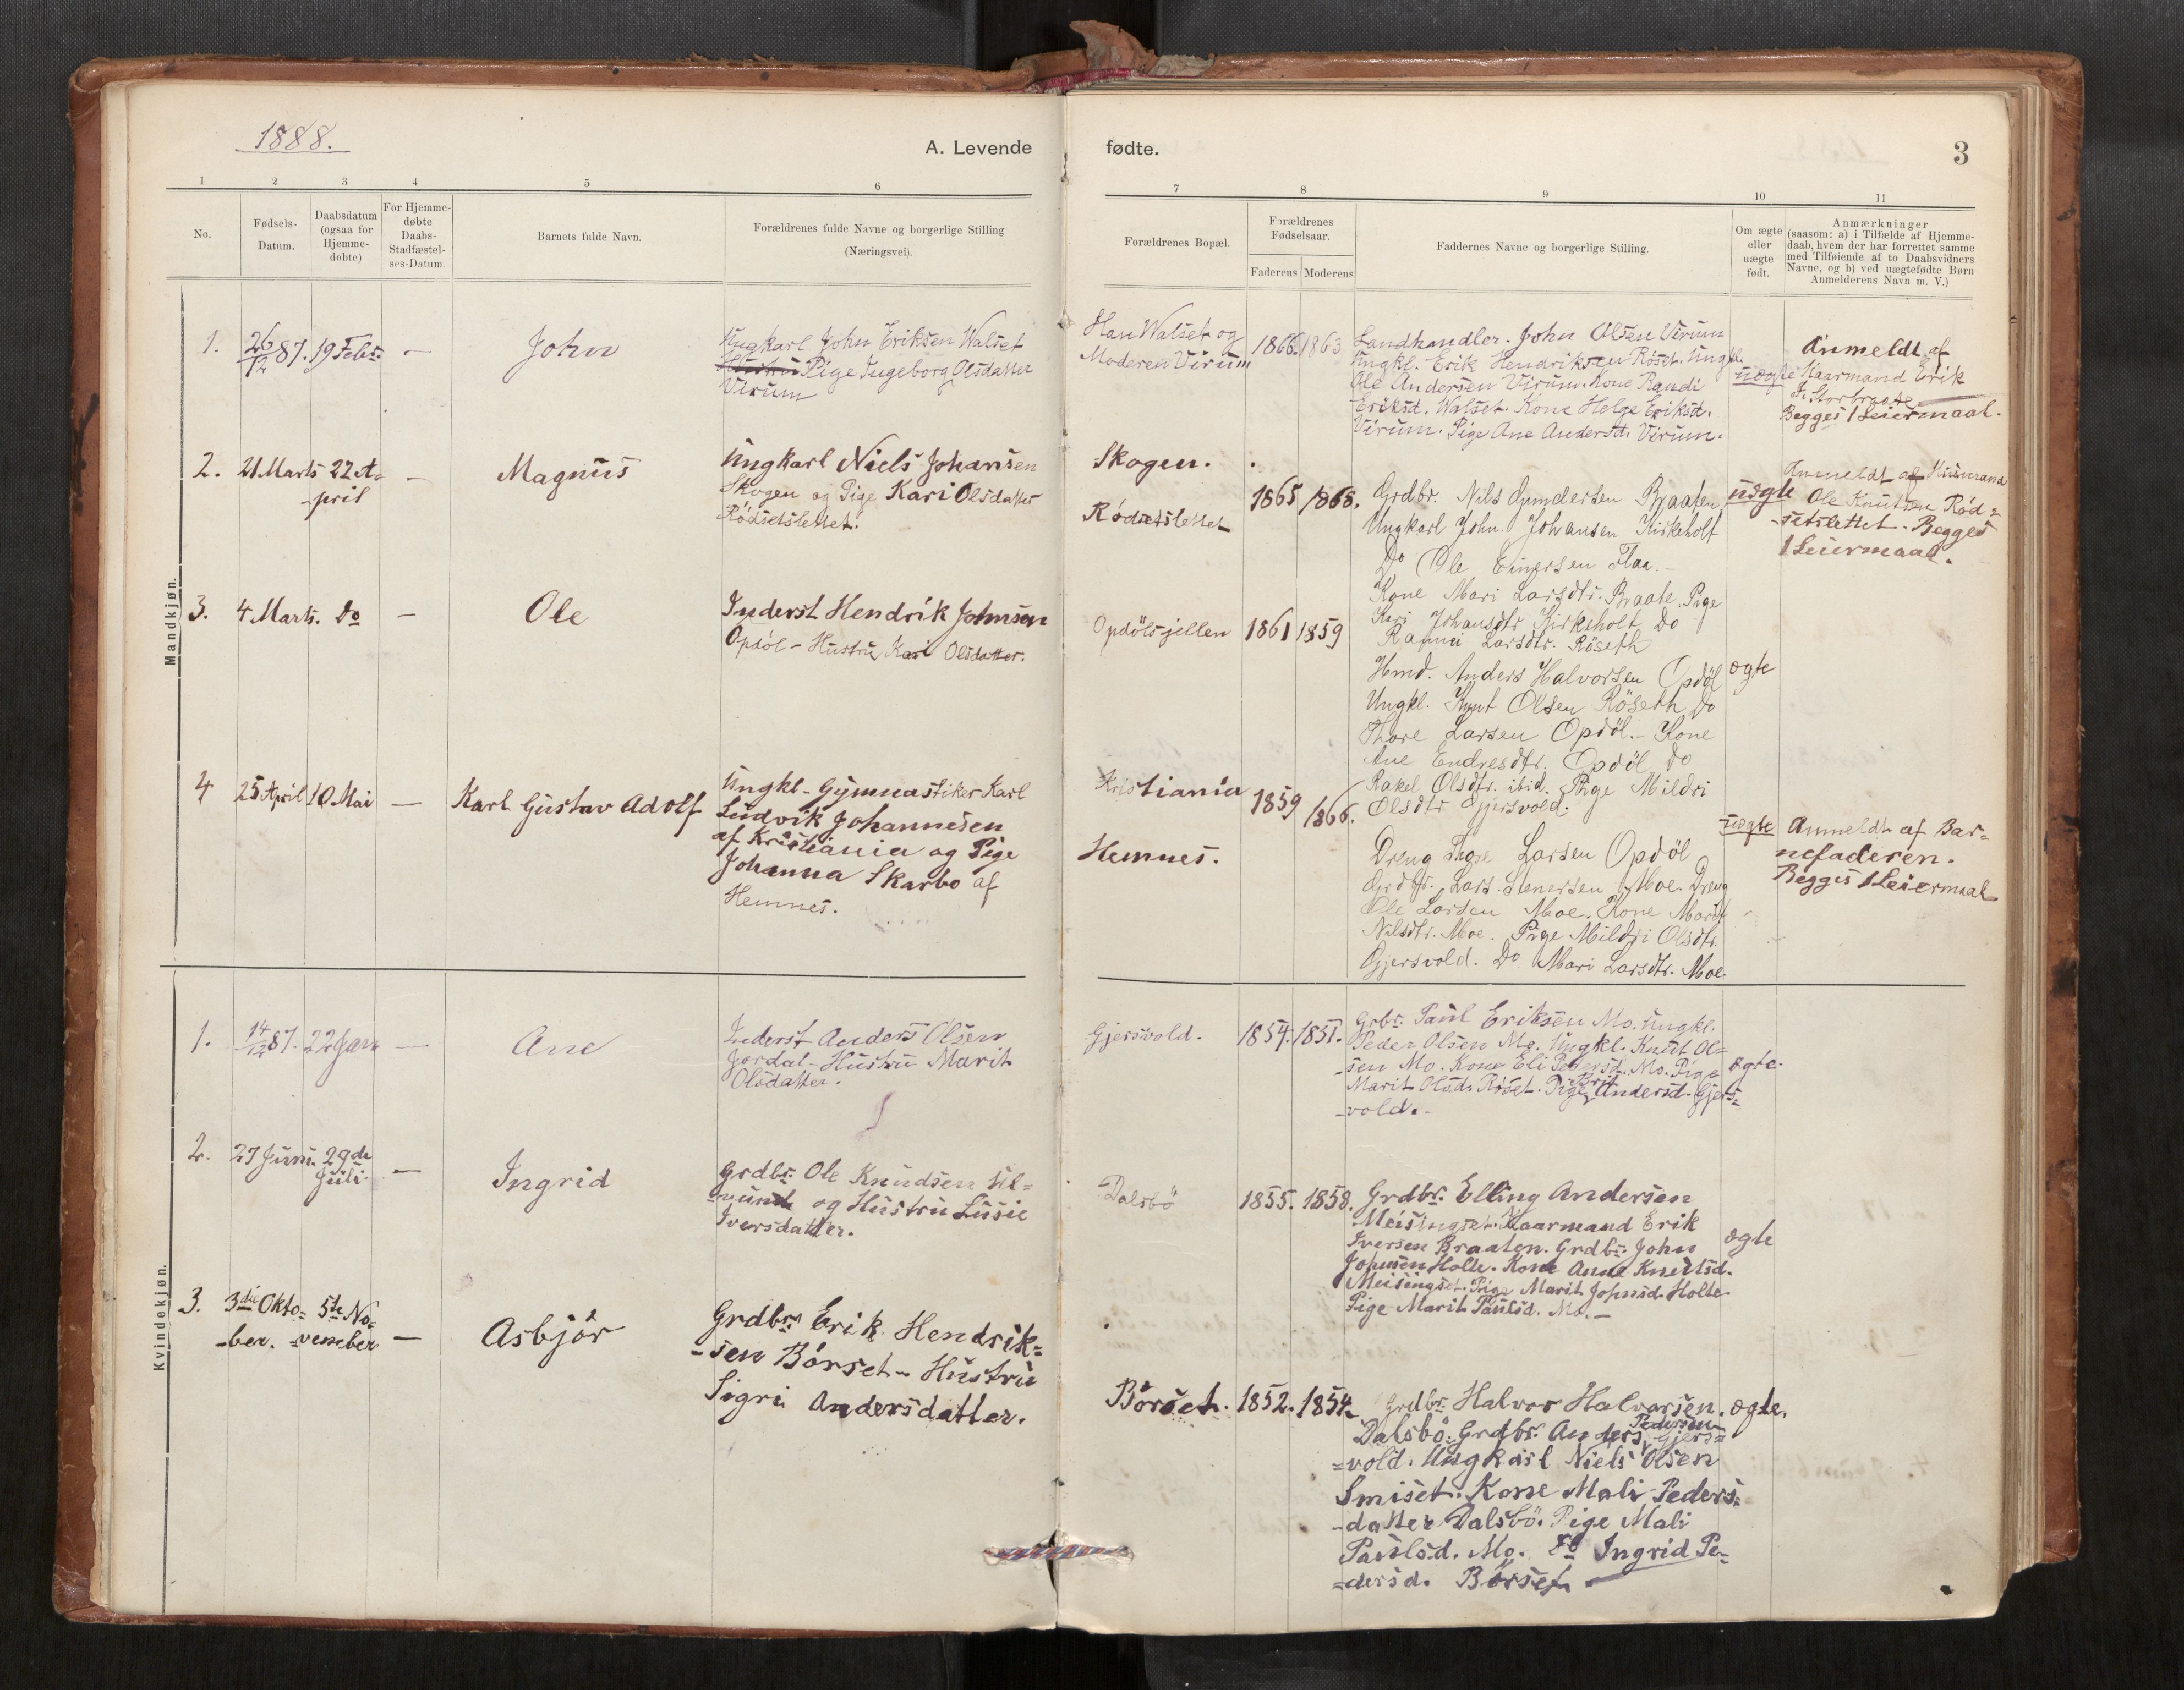 1888.
A. Levende
fødte.
3
1 2 3 4 5 6 7 8 9 10 11
No.
Fødsels-
Datum.
Daabsdatum
(ogsaa for
Hjemme-
døbte)
For Hjemme-
døbte
Daabs-
Stadfæstel-
ses-Datum.
Barnets fulde Navn.
Forældrenes fulde Navne og borgerlige Stilling
(Næringsvei).
Forældrenes Bopæl.
Forældrenes
Fødselsaar.
Faderens Moderens
Faddernes Navne og borgerlige Stilling.
Om ægte
eller
uægte
født.
Anmærkninger
(saasom: a) i Tilfælde af Hjemme-
daab, hvem der har forrettet samme
med Tilføiende af to Daabsvidners
Navne, og b) ved uægtefødte Børn
Anmelderens Navn m. V.)
Mandkjøn.
1. 26/12 87. 19 Febr. — John
Ungkarl John Eriksen Walset
Hustru Pige Ingeborg Olsdatter
Virum
Han Walset og
Moderen Virum
1866. 1863
Landhandler. John Olsen Virum
Ungkl. Erik Hendriksen Röset. Ungkl.
Ole Andersen Virum. Kone Randi
Eriksd. Walset. Kone Helge Eriksd.
Virum. Pige Ane Andersd. Virum.
uægte
Anmeldt af
Kaarmand Erik
Storbraate
Begges 1 Leiermaal.
2. 21 Marts 22 A-
-pril — Magnus
Ungkarl Niels Johansen
Skogen og Pige Kari Olsdatter
Rödsetslettet.
Skogen.
Rödsetslettet
1865 1868.
Grdbr. Nils Gundersen Braaten
Ungkarl John Johansen Kirkeholt
Do Ole Einersen Flaa. -
Kone Mari Larsdtr. Braate. Pige
Kari Johansdtr Kirkeholt Do
Larsdtr. Röseth
uægte
Anmeldt af Husmand
Ole Knutsen Röd=
-setslettet. Begges
1 Leiermaal.
3. 4 Marts. Do — Ole
Inderst Hendrik Johnsen
Opdöl - Hustru Kari Olsdatter.
Opdölsjellen
1861 1859
Hmd. Anders Halvorsen Opdöl
Ungkl. Knut Olsen Röseth Do
Thore Larsen Opdöl. - Kone
Ane Endresdtr. Opdöl Do
Rakel Olsdtr. ibid. Pige Mildri
Olsdtr Gjersvold.
ægte
4 25 April 10 Mai — Karl Gustav Adolf
Ungkl - Gymnastiker Karl
Ludvik Johannesen
af Kristiania og Pige
Johanna Skarbo af
Hemnes.
Kristiania
Hemnes.
1859 1866.
Dreng Thore Larsen Opdöl
Grdbr. Lars Stenersen Moe. Dreng
Ole Larsen Moe. Kone Marit
Nilsdtr. Moe. Pige Mildri Olsdtr.
Gjersvold. Do Mari Larsdtr. Moe.
uægte
Anmeldt af Bar=
nefaderen.
Begges 1 Leiermaal
Kvindekjøn.
1. 14/12 87. 22 Jan. — Ane
Inderst Anders Olsen
Jordal - Hustru Marit
Olsdatter.
Gjersvold.
1854. 1851.
Grbr. Paul Eriksen Mo. Ungkl.
Peder Olsen Mo. Ungkl. Knut Ol=
-sen Mo. Kone Eli Pedersd. Mo. Pige
Marit Olsd. Röset. Pige Brit Andersd. Gjers=
-vold. -
ægte.
2. 27 Juni. 29de
Juli. — Ingrid
Grdbr. Ole Knudsen Sil=
og Hustru Lusie
Iversdatter.
Dalsbö
1855. 1858.
Grdbr. Elling Andersen
Meisingset. Kaarmand Erik
Iversen Braaten. Grdbr. John
Johnsen Holte. Kone Anne Knutsd.
Meisingset. Pige Marit Johnsd. Holte.
Pige Marit Paulsd. Mo. -
ægte
3. 3die Okto= 5te No=
-ber. -vember — Asbjör
Grdbr. Erik Hendrik=
-sen Börset - Hustru
Sigri Andersdatter.
Börset.
1852. 1854.
Grdbr. Halvor Halvorsen.
Dalsbö. Grdbr. Anders Pedersen Gjers=
=vold. Ungkarl Niels Olsen
Smiset. Kone Mali Peders=
-datter Dalsbö. Pige Mali
Paulsd. Mo. Do Ingrid Pe=
=dersd. Börset. -
ægte.